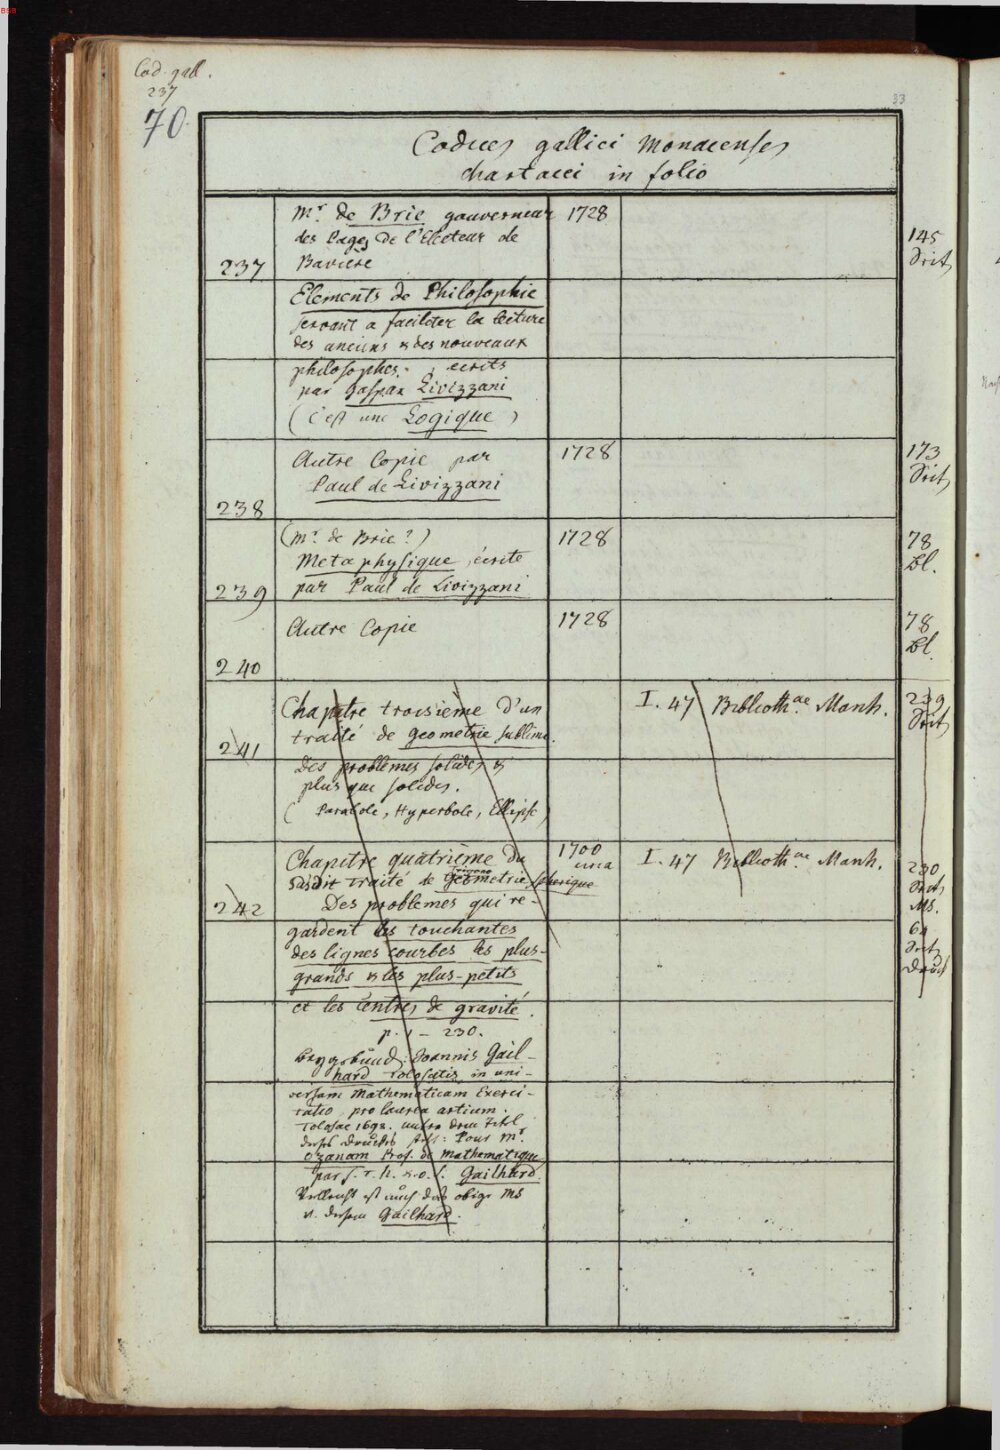 Cod. gall.
237
70.
33
Codices gallici Monacenses
chartacei in folio
237
Mr. de Brie gouverneur
des Pages de l'Electeur de
Baviere
1728
145
Seit.
Elements de Philosophie
servant a faciliter la lecture
des anciens & des nouveaux
philosophes. ecrits
par Gaspar Livizzani
(C'est une Logique)
238
Autre Copie par
Paul de Livizzani
1728
173
Seit.
239
(Mr. de Brie?)
Metaphysique, écrite
par Paul de Livizzani
1728
78
Bl.
240
Autre Copie
1728
78
Bl.
241
Chapitre troisième d'un
traité de Geometrie sublime.
Des problemes solides &
plus que solides.
(Parabole, Hyperbole, Ellipse)
I. 47 Biblioth.ae Manh.
239
Seit.
242
Chapitre quatrième du
susdit traité de Geometrie spherique
Des problemes qui re-
gardent les touchantes
des lignes courbes les plus-
grands & les plus-petits
et les Centres de gravité.
p. 1 - 230.
1700
circa
I. 47 Biblioth.ae Manh.
230
Seit.
Ms.
64
Seit.
Druck
beygebund: Joannis Gail-
hard Tolosatis in uni-
versam Mathematicam Exerci-
tatio, pro laurea artium.
Tolosae 1698. unter dem Titel
Pour Mr.
Ozanam Prof. de Mathematique
par Gailhard.
Vielleicht ist auch das obige Ms
v. diesem Gailhard.